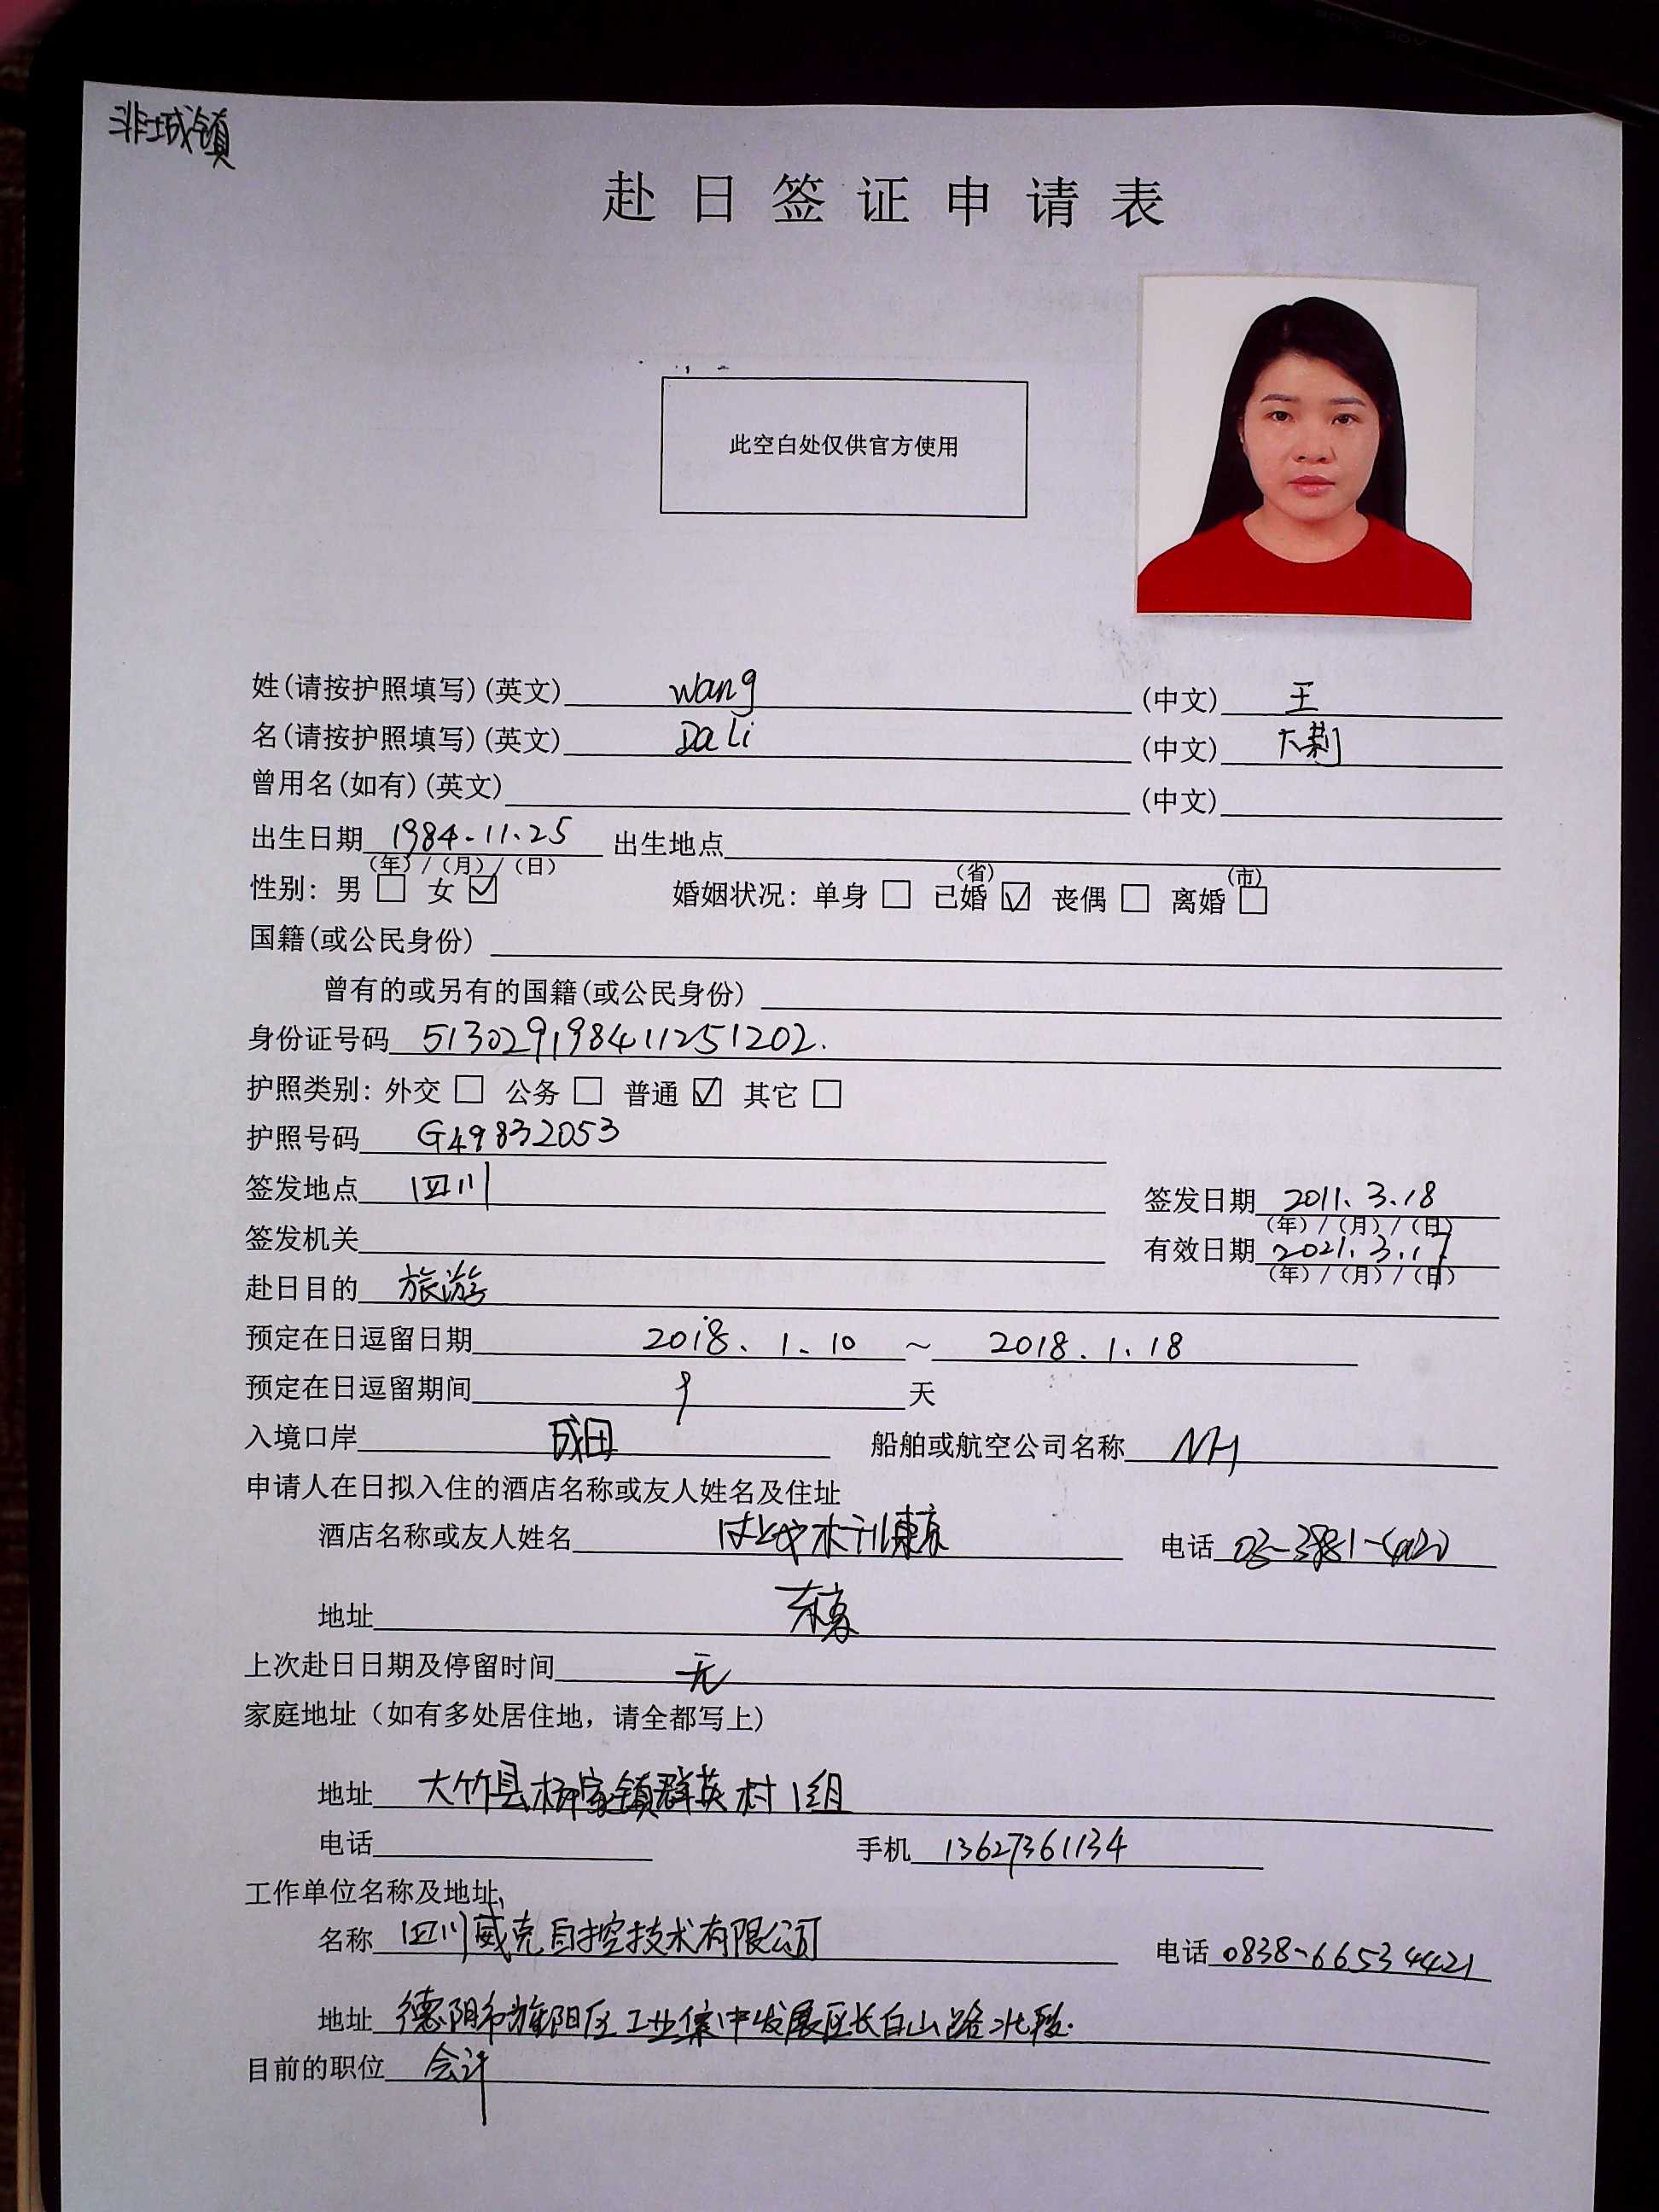 非城镇
赴日签证申请表
此空白处仅供官方使用
姓(请按护照填写)(英文) Wang (中文) 王
名(请按护照填写)(英文) Da Li (中文) 大莉
曾用名(如有)(英文) (中文)
出生日期 1984.11.25 出生地点
(年)/(月)/(日) (省) (市)
性别: 男 □ 女 ☑ 婚姻状况: 单身 □ 已婚 ☑ 丧偶 □ 离婚 □
国籍(或公民身份)
曾有的或另有的国籍(或公民身份)
身份证号码 513029198411251202.
护照类别: 外交 □ 公务 □ 普通 ☑ 其它 □
护照号码 G49832053
签发地点 四川 签发日期 2011.3.18
(年)/(月)/(日)
签发机关 有效日期 2021.3.17
(年)/(月)/(日)
赴日目的 旅游
预定在日逗留日期 2018.1.10 ~ 2018.1.18
预定在日逗留期间 9 天
入境口岸 成田 船舶或航空公司名称 NH
申请人在日拟入住的酒店名称或友人姓名及住址
酒店名称或友人姓名 電话 03-3981-
地址 东京
上次赴日日期及停留时间 无
家庭地址(如有多处居住地，请全都写上)
地址 大竹县杨家镇群英村1组
电话 手机 13627361134
工作单位名称及地址
名称 四川威克自控技术有限公司 电话 0838-66534421
地址 德阳市旌阳区工业集中发展区长白山路北段.
目前的职位 会计